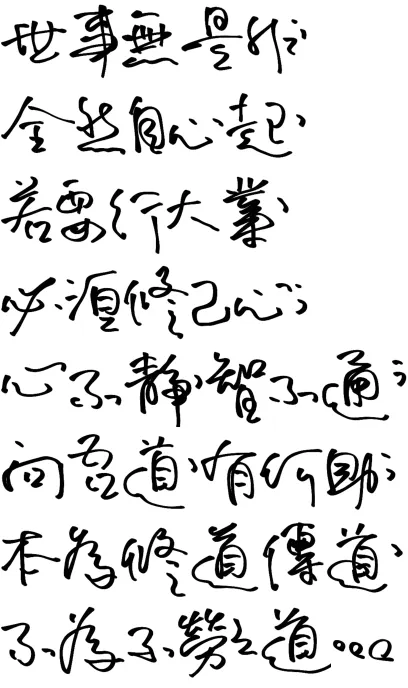 世事無是非
全然自心起
若要行大業
必須修己心
心不靜智不通
向吾道有何助
本為修道傳道
不為不勞之道。。。